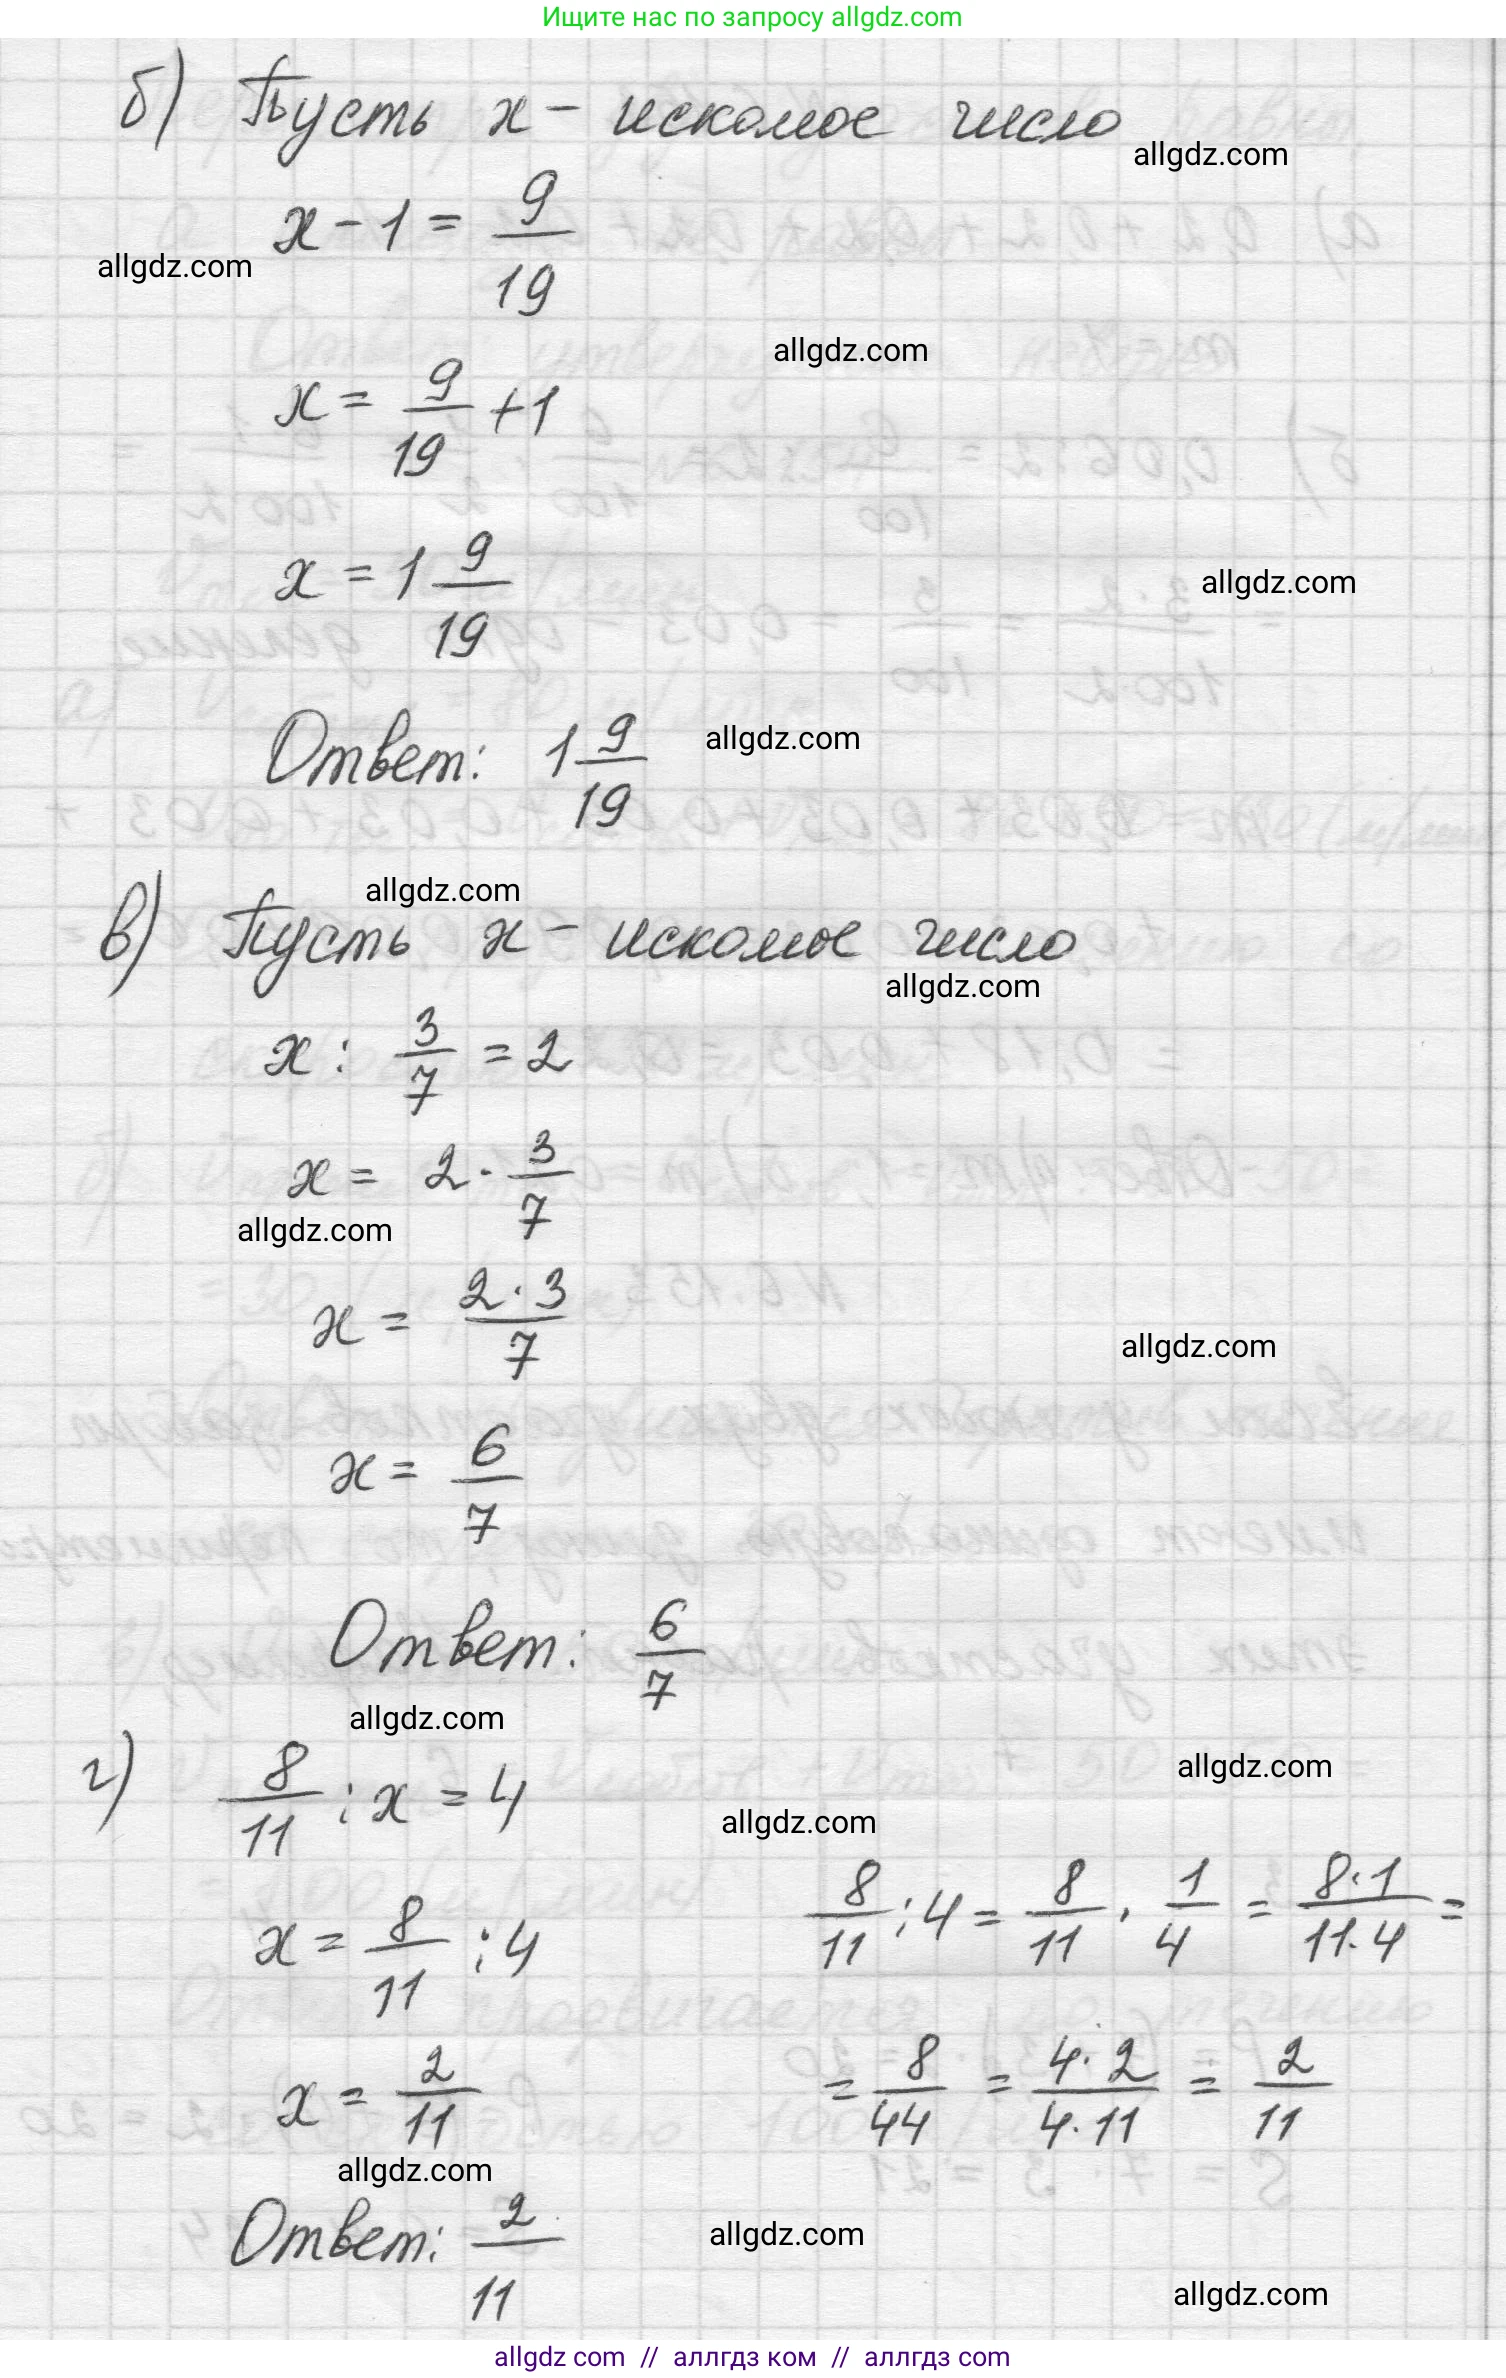 Ищите нас по запросу allgdz.com
б) Пусть x - искомое число
allgdz.com
x - 1 = 9/19
allgdz.com
allgdz.com
x = 9/19 + 1
x = 1 9/19
allgdz.com
Ответ: 1 9/19
allgdz.com
allgdz.com
в) Пусть x - искомое число
allgdz.com
x : 3/7 = 2
x = 2 · 3/7
allgdz.com
x = 2 · 3/7
allgdz.com
x = 6/7
Ответ: 6/7
allgdz.com
г) 8/11 : x = 4
allgdz.com
allgdz.com
x = 8/11 : 4
8/11 : 4 = 8/11 · 1/4 = 8·1/11·4 =
x = 2/11
= 8/44 = 4·2/4·11 = 2/11
allgdz.com
Ответ: 2/11
allgdz.com
allgdz.com
allgdz com // аллгдз ком // аллгдз com